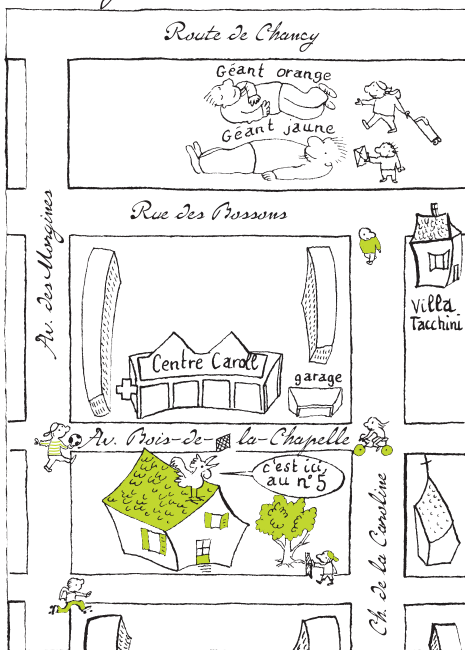 Route de Chancy
Géant orange
Géant jaune
Rue des Bossons
Av. des Morgines
Villa
Tacchini
Centre Caroll
garage
Av. Bois-de-la-Chapelle
c'est ici
au n° 5
Ch. de la Caroline